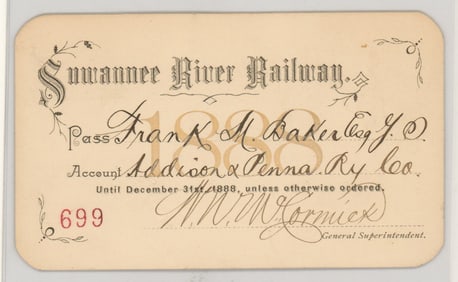 Suwannee River Railway.
1888
Pass Frank M. Baker Esq J. S.
Account Addison & Penna. Ry Co.
Until December 31st, 1888, unless otherwise ordered.
699
General Superintendent.